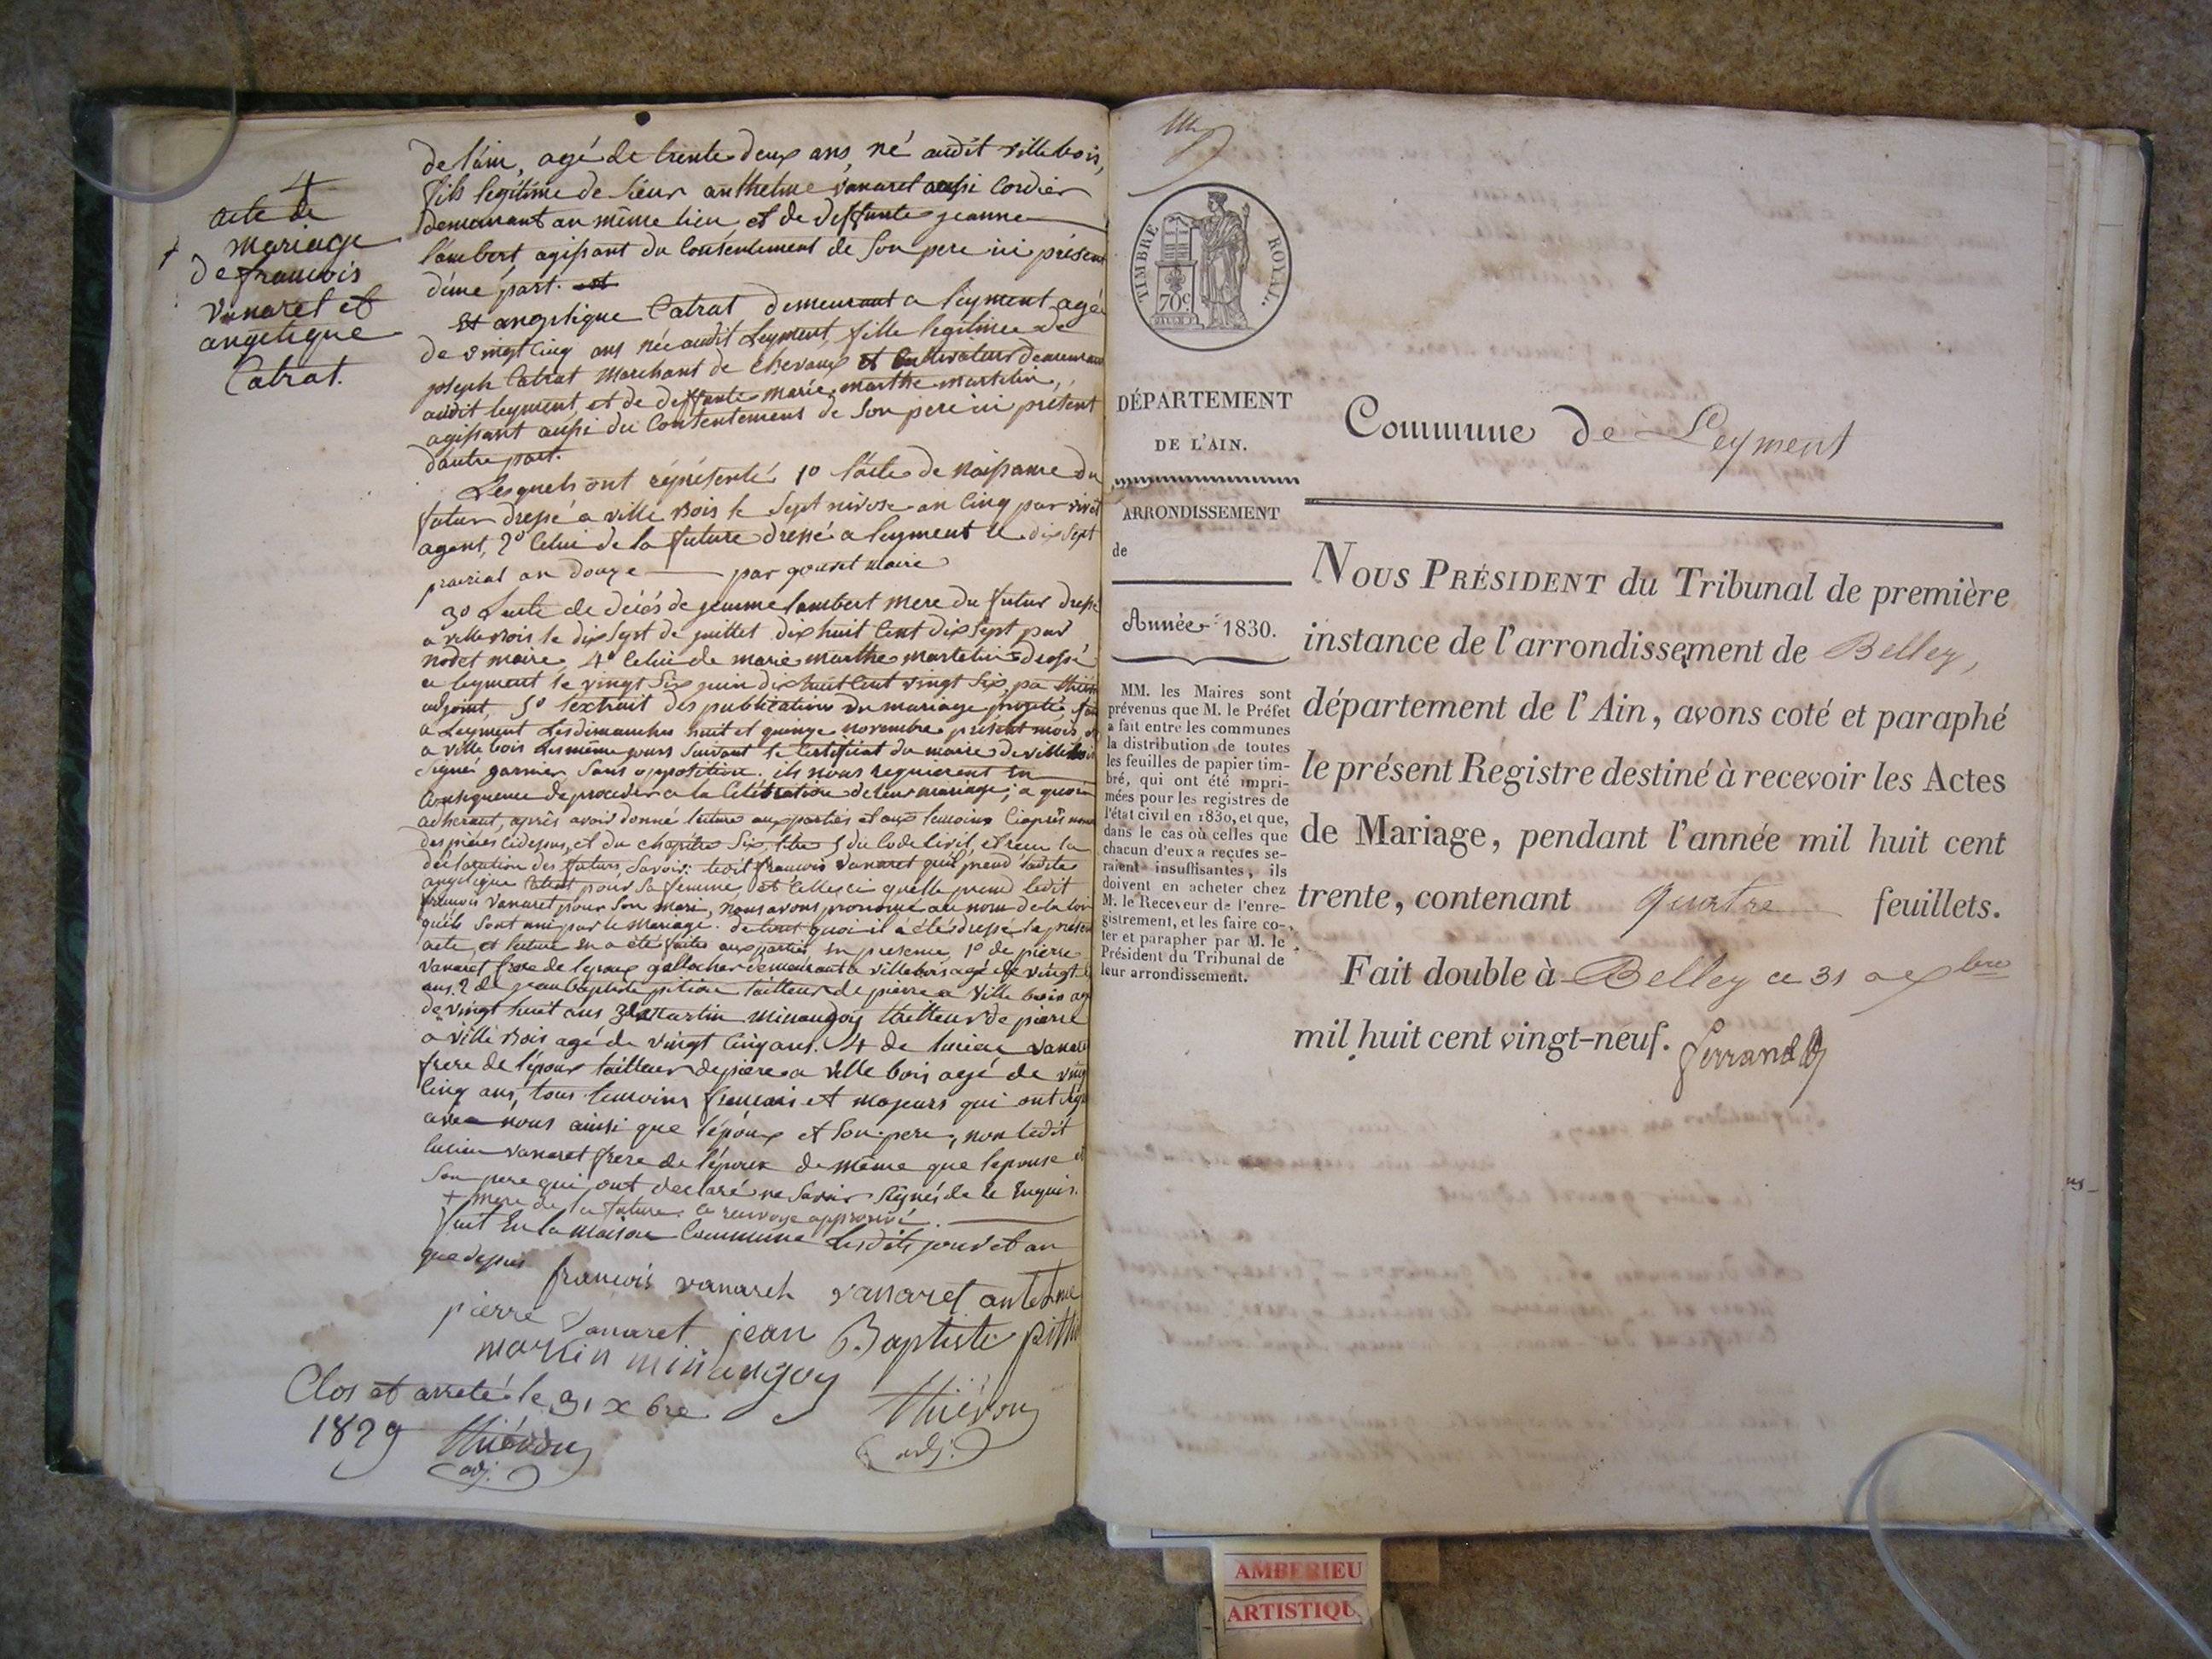 4
acte de
mariage
de francois
vanaret et
angelique
Catrat.
de l'ain, agé de trente deux ans, né audit villebois,
fils legitime de sieur anthelme vanaret aussi Cordier
demeurant au même lieu et de deffunte jeanne
lambert agissant du Consentement de son pere ici présent
d'une part.
Et angelique Catrat demeurant a leyment agée
de vingt cinq ans née audit Leyment, fille legitime de
joseph Catrat marchant de chevaux et Cultivateur demeurant
audit leyment, et de deffunte marie marthe martelin,
agissant aussi du Consentement de son pere ici présent
d'autre part.
Lesquels ont réprésenté 1º l'acte de naissance du
futur dressé a ville Bois le sept nivose an Cinq par
agent, 2º Celui de la future dressé a leyment le dix sept
prairial an douze par gouret maire
3º l'acte de décés de jeanne lambert mere du futur dressé
a ville Bois le dix sept de juillet dix huit Cent dix sept par
nodet maire, 4º Celui de marie marthe martelin dressé
a leyment le vingt six juin dix huit Cent vingt six, par
adjoint, 5º l'extrait des publications du mariage projetté
a Leyment Les dimanches huit et quinze novembre présent mois, et
a ville bois Les même jours suivant le Certificat du maire de ville bois
signé garnier, sans opposition. ils nous requierent en
Consequence de proceder a la Celébration de leur mariage; a quoi
adherant, après avoir donné lecture aux parties et aux temoins Ciaprès
des pièces cidessus, et du chapitre six, titre 5 du Code Civil, et recu la
déclaration des futurs, savoir: ledit francois vanaret qu'il prend ladite
angelique Catrat pour sa femme, et Celleci quelle prend ledit
francois vanaret pour son mari, nous avons prononcé au nom de la loi
qu'ils sont unis par le mariage. de tout quoi il a été dressé le présent
acte, et lecture en a été faite aux parties en presence 1º de pierre
vanaret frere de lepoux demeurant a villebois agé de vingt
ans. 2 de jean baptiste tailleur de pierre a Ville bois agé
de vingt huit ans 3 de Martin Minangoy tailleur de pierre
a ville Bois agé de vingt Cinq ans. 4 de lucien vanaret
frere de l'époux tailleur de piere a ville bois agé de vingt
Cinq ans, tous temoins francais et majeurs qui ont signé
avec nous ainsi que l'époux et son pere, non ledit
lucien vanaret frere de l'époux de même que lepouse et
son pere qui ont declaré ne savoir signés de Ce Enquis.
+ mere de la future. Ce renvoye approuvé.
fait En la maison Commune Lesdits jour et an
que dessus
francois vanareh vanaret antelme
pierre vanaret jean Baptiste
martin minangoy
Clos et arreté le 31 xbre
1829
adj.
adj.
TIMBRE ROYAL.
70c
DÉPARTEMENT
DE L'AIN.
ARRONDISSEMENT
de
Année 1830.
MM. les Maires sont
prévenus que M. le Préfet
a fait entre les communes
la distribution de toutes
les feuilles de papier tim-
bré, qui ont été impri-
mées pour les registres de
l'état civil en 1830, et que,
dans le cas où celles que
chacun d'eux a reçues se-
raient insuffisantes, ils
doivent en acheter chez
M. le Receveur de l'enre-
gistrement, et les faire co-
ter et parapher par M. le
Président du Tribunal de
leur arrondissement.
Commune de Leyment
NOUS PRÉSIDENT du Tribunal de première
instance de l'arrondissement de Belley,
département de l'Ain, avons coté et paraphé
le présent Registre destiné à recevoir les Actes
de Mariage, pendant l'année mil huit cent
trente, contenant quatre feuillets.
Fait double à Belley ce 31 xbre
mil huit cent vingt-neuf.
Ferrand
AMBERIEU
ARTISTIQU